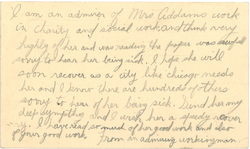 I am an admirer of Mrs Addams work
in charity and social work and think very
highly of her and was reading the paper was
sorry to hear her being sick. I hope she will
soon recover as a city like chicago needs
her and I know there are hundreds of others
sorry to hear of her being sick. Send her my
deep sympathy and I wish her a speedy recover
y. I have read so much of her good work and also
of your good work. From an admiring workingman